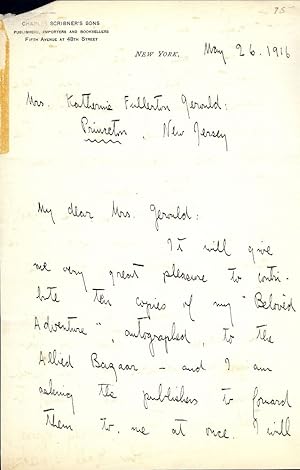 75
CHARLES SCRIBNER'S SONS
PUBLISHERS, IMPORTERS AND BOOKSELLERS
FIFTH AVENUE AT 48TH STREET
NEW YORK, May 26. 1916
Mrs. Katherine Fullerton Gerould:
Princeton, New Jersey
My dear Mrs. Gerould:
It will give
me very great pleasure to contri-
bute ten copies of my "Beloved
Adventure", autographed, to the
Allied Bazaar - and I am
asking the publishers to forward
them to me at once. I will